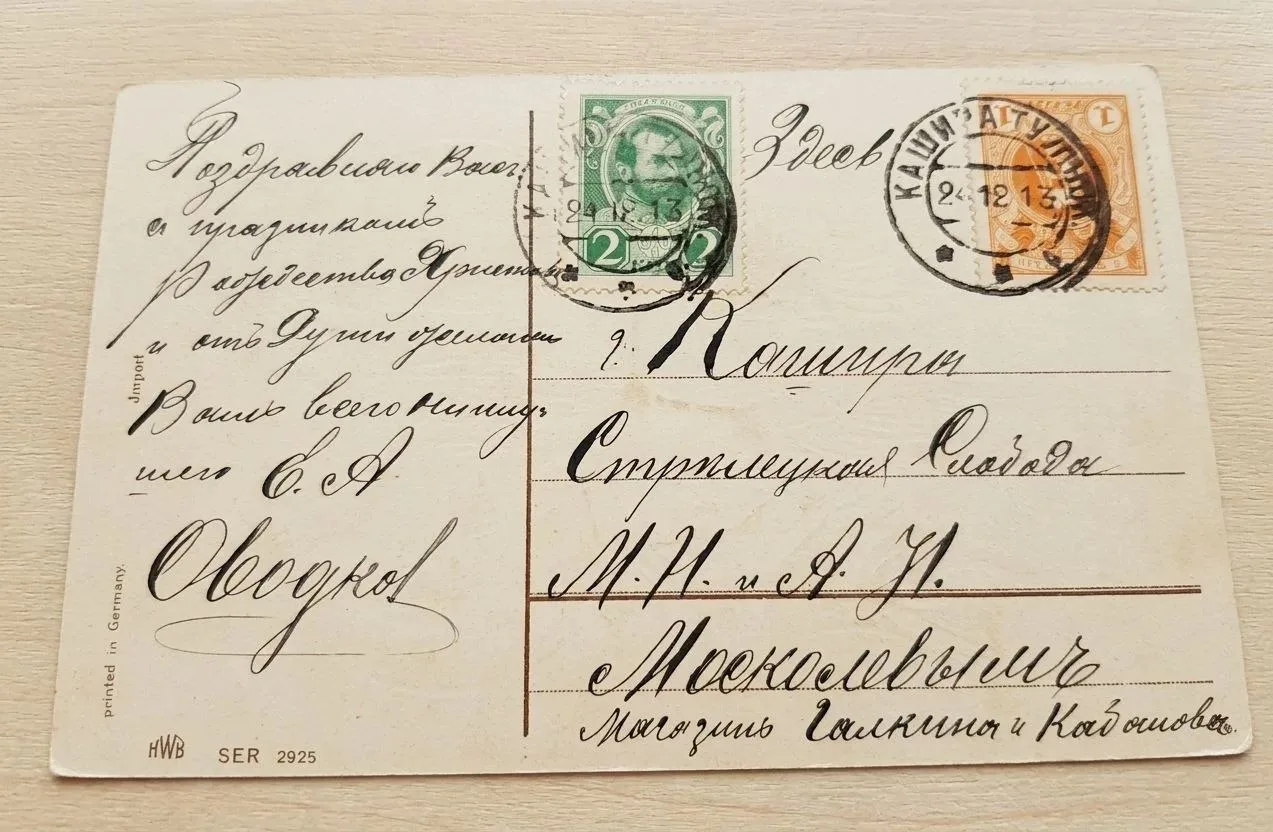 Поздравляю Васъ
съ праздникомъ
Рождества Христова
и отъ души желаю
Вамъ всего наилуч=
шего Е. А.
Оводков
Jmport
printed in Germany.
HWB SER 2925
2 2
24 12 13
Здесь
КАШИРА ТУЛЬСК
24 12 13
1 1
г. Кашира
Стрѣлецкая Слобода
М. Н. и А. Н.
Москолевымъ
Магазинъ Галкина и Кабанова.